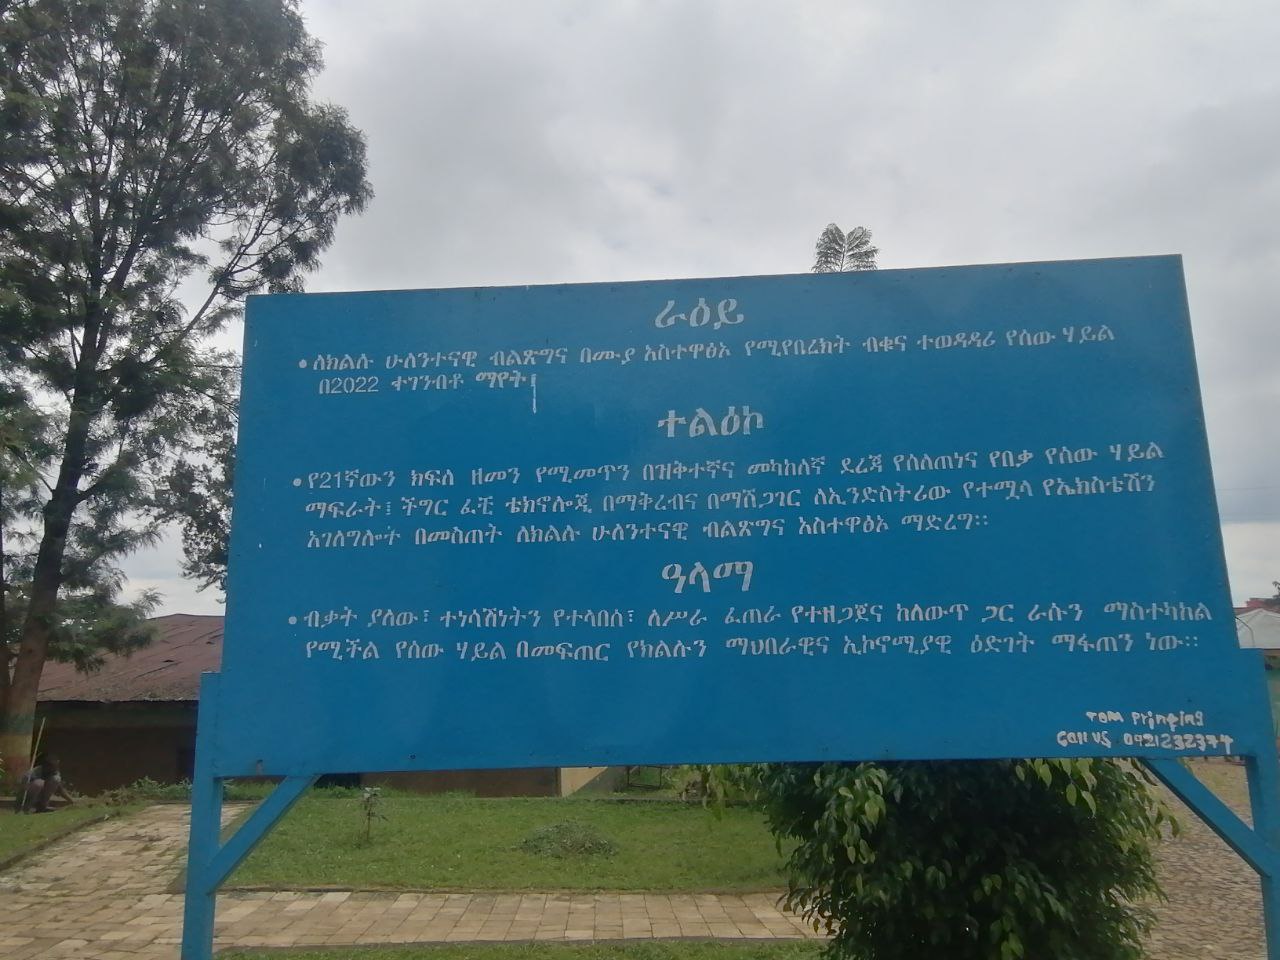 ራዕይ
• ለክልሉ ሁለንተናዊ ብልጽግና በሙያ አስተዋፅኦ የሚያበረክት ብቁና ተወዳዳሪ የሰው ሃይል
በ2022 ተገንብቶ ማየት፤
ተልዕኮ
• የ21ኛውን ክፍለ ዘመን የሚመጥን በዝቅተኛና መካከለኛ ደረጃ የሰለጠነና የበቃ የሰው ሃይል
ማፍራት፤ ችግር ፈቺ ቴክኖሎጂ በማቅረብና በማሸጋገር ለኢንድስትሪው የተሟላ የኤክስቴሽን
አገለግሎት በመስጠት ለክልሉ ሁለንተናዊ ብልጽግና አስተዋፅኦ ማድረግ።
ዓላማ
• ብቃት ያለው፣ ተነሳሽነትን የተላበሰ፣ ለሥራ ፈጠራ የተዘጋጀና ከለውጥ ጋር ራሱን ማስተካከል
የሚችል የሰው ሃይል በመፍጠር የክልሉን ማህበራዊና ኢኮኖሚያዊ ዕድገት ማፋጠን ነው።
TOM Printing
Call us 0921232374